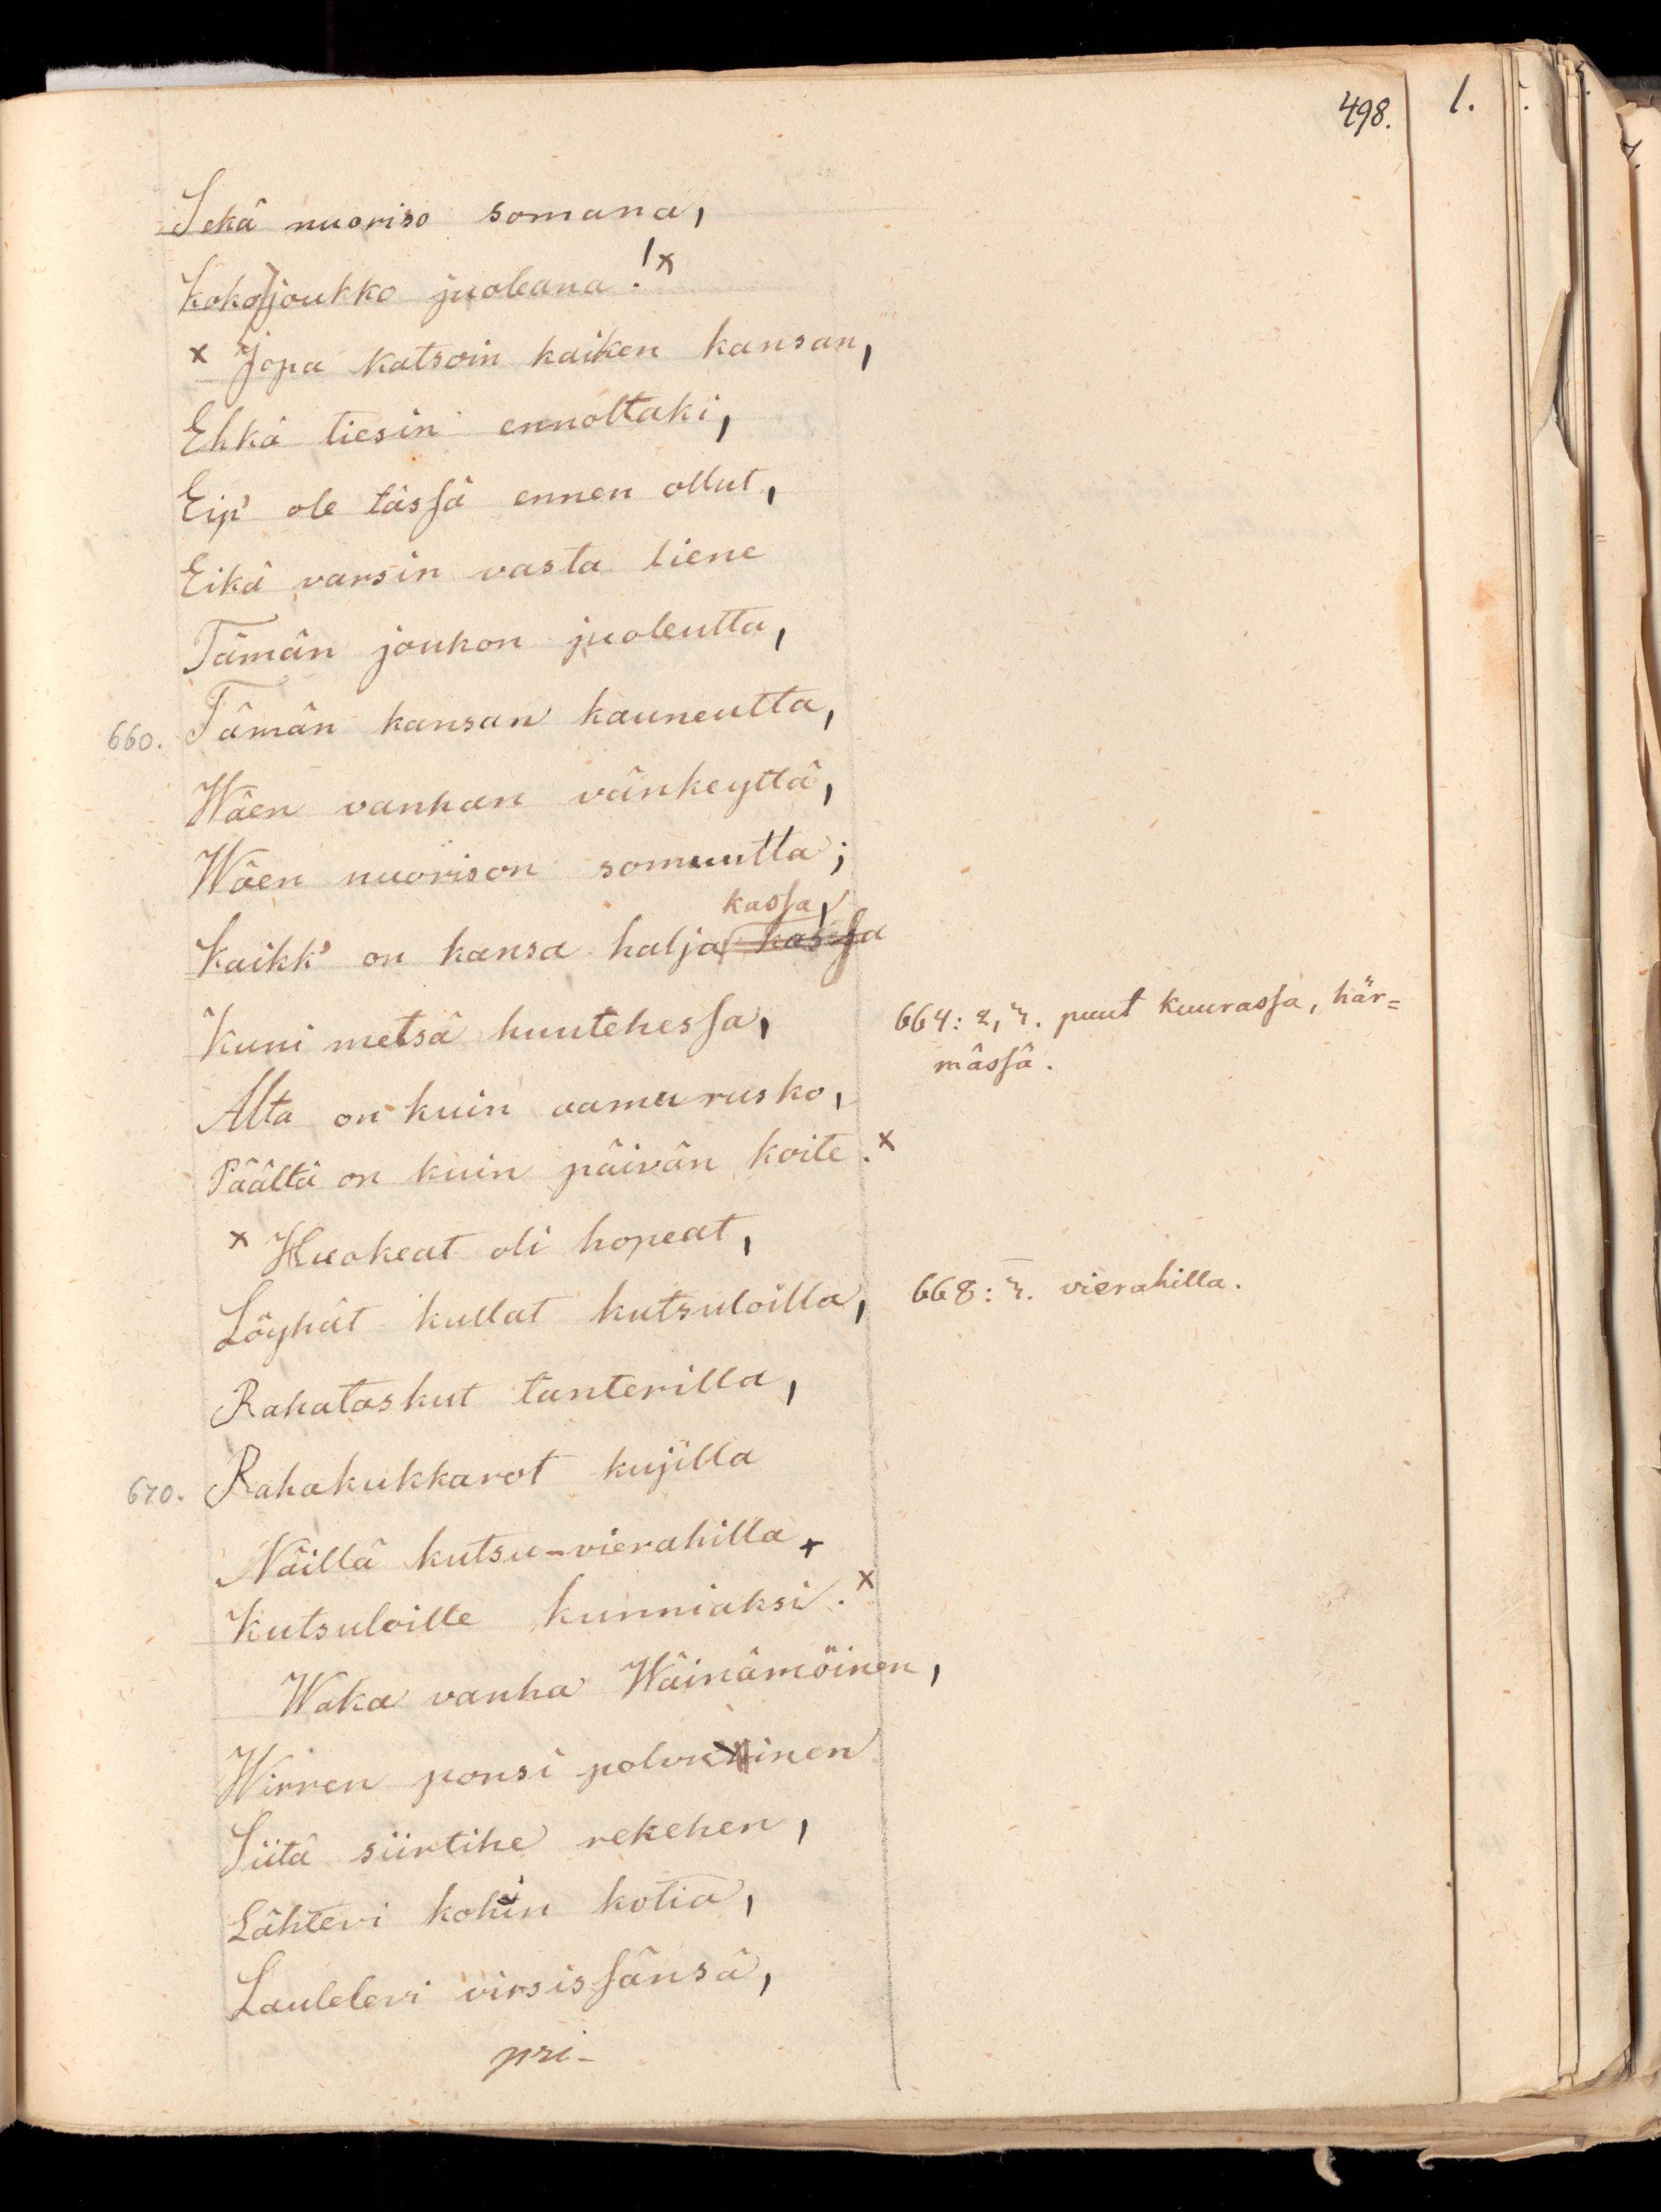 498.
1.
Sekä nuoriso somana,
Koko joukko juoleana!x
x Jopa katsoin kaiken kansan,
Ehkä tiesin ennoltaki,
Eip' ole tässä ennen ollut,
Eikä varsin vasta liene
Tämän joukon juoleutta,
660. Tämän kansan kauneutta,
Wäen vanhan vänkeyttä,
Wäen nuorison somuutta;
kassa,
Kaikk' on kansa halja kassa
Kuni metsä huutehessa,
664: 2, 3. puut kuurassa, här=
mässä.
Alta on kuin aamurusko,
Päältä on kuin päivän koite.x
x Huokeat oli hopeat,
Löyhät kullat kutsuloilla,
668: 3. vierahilla.
Rahataskut tanterilla,
670. Rahakukkarot kujilla
Näillä kutsu-vierahilla +
Kutsuloille kunniaksi.x
Waka vanha Wäinämöinen,
Wirren ponsi polvuinen
Siitä siirtihe rekehen,
Lähtevi kohin kotia,
Laulelevi virsissänsä,
pri-